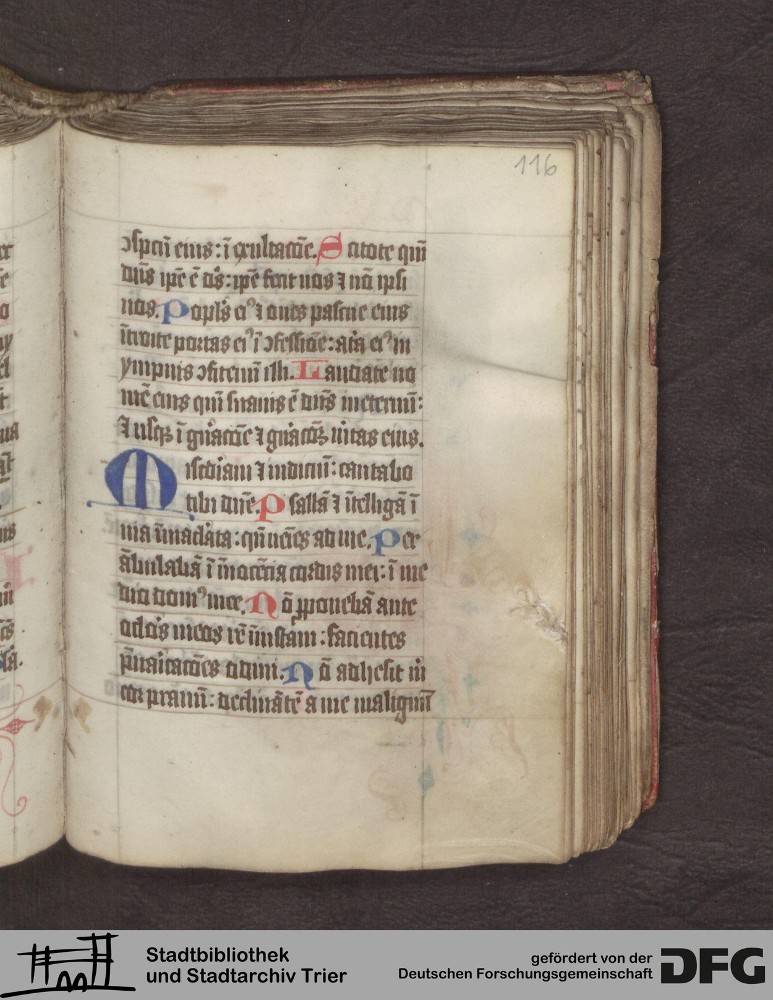 116
ↄſpcū eius: ī exultacōe. Scitote qm̄
dn̄s ipẽ ē ds̄: ipẽ fecit nos ⁊ nō ipſi
nos. Popls̄ eiꝰ ⁊ oues paſcue eius
ītroite portas eiꝰ ī ↄfeſſiōe: at̄a eiꝰ in
ympnis ↄfitemī illi. Laudate no
mē eius qm̄ ſuauis ē dn̄s ineternū:
⁊ uſqꝫ ī gn̄acōe ⁊ gn̄acōꝫ ūitas eius.
Miſcdiam ⁊ iudiciū: cantabo
tibi dn̄e. Pſallā ⁊ ītelligā ī
uia īmaclāta: qn̄ ueīes ad me. Per
ābulabā ī īnocēcia cordis mei: ī me
dio domꝰ mee. Nō ꝓponebā ante
oclōs meos rē īniuſtam: facientes
p̄uaricacōes odiui. Nō adheſit m̄
cor prauū: declināte a me malignū
Stadtbibliothek
und Stadtarchiv Trier
gefördert von der
Deutschen Forschungsgemeinschaft
DFG